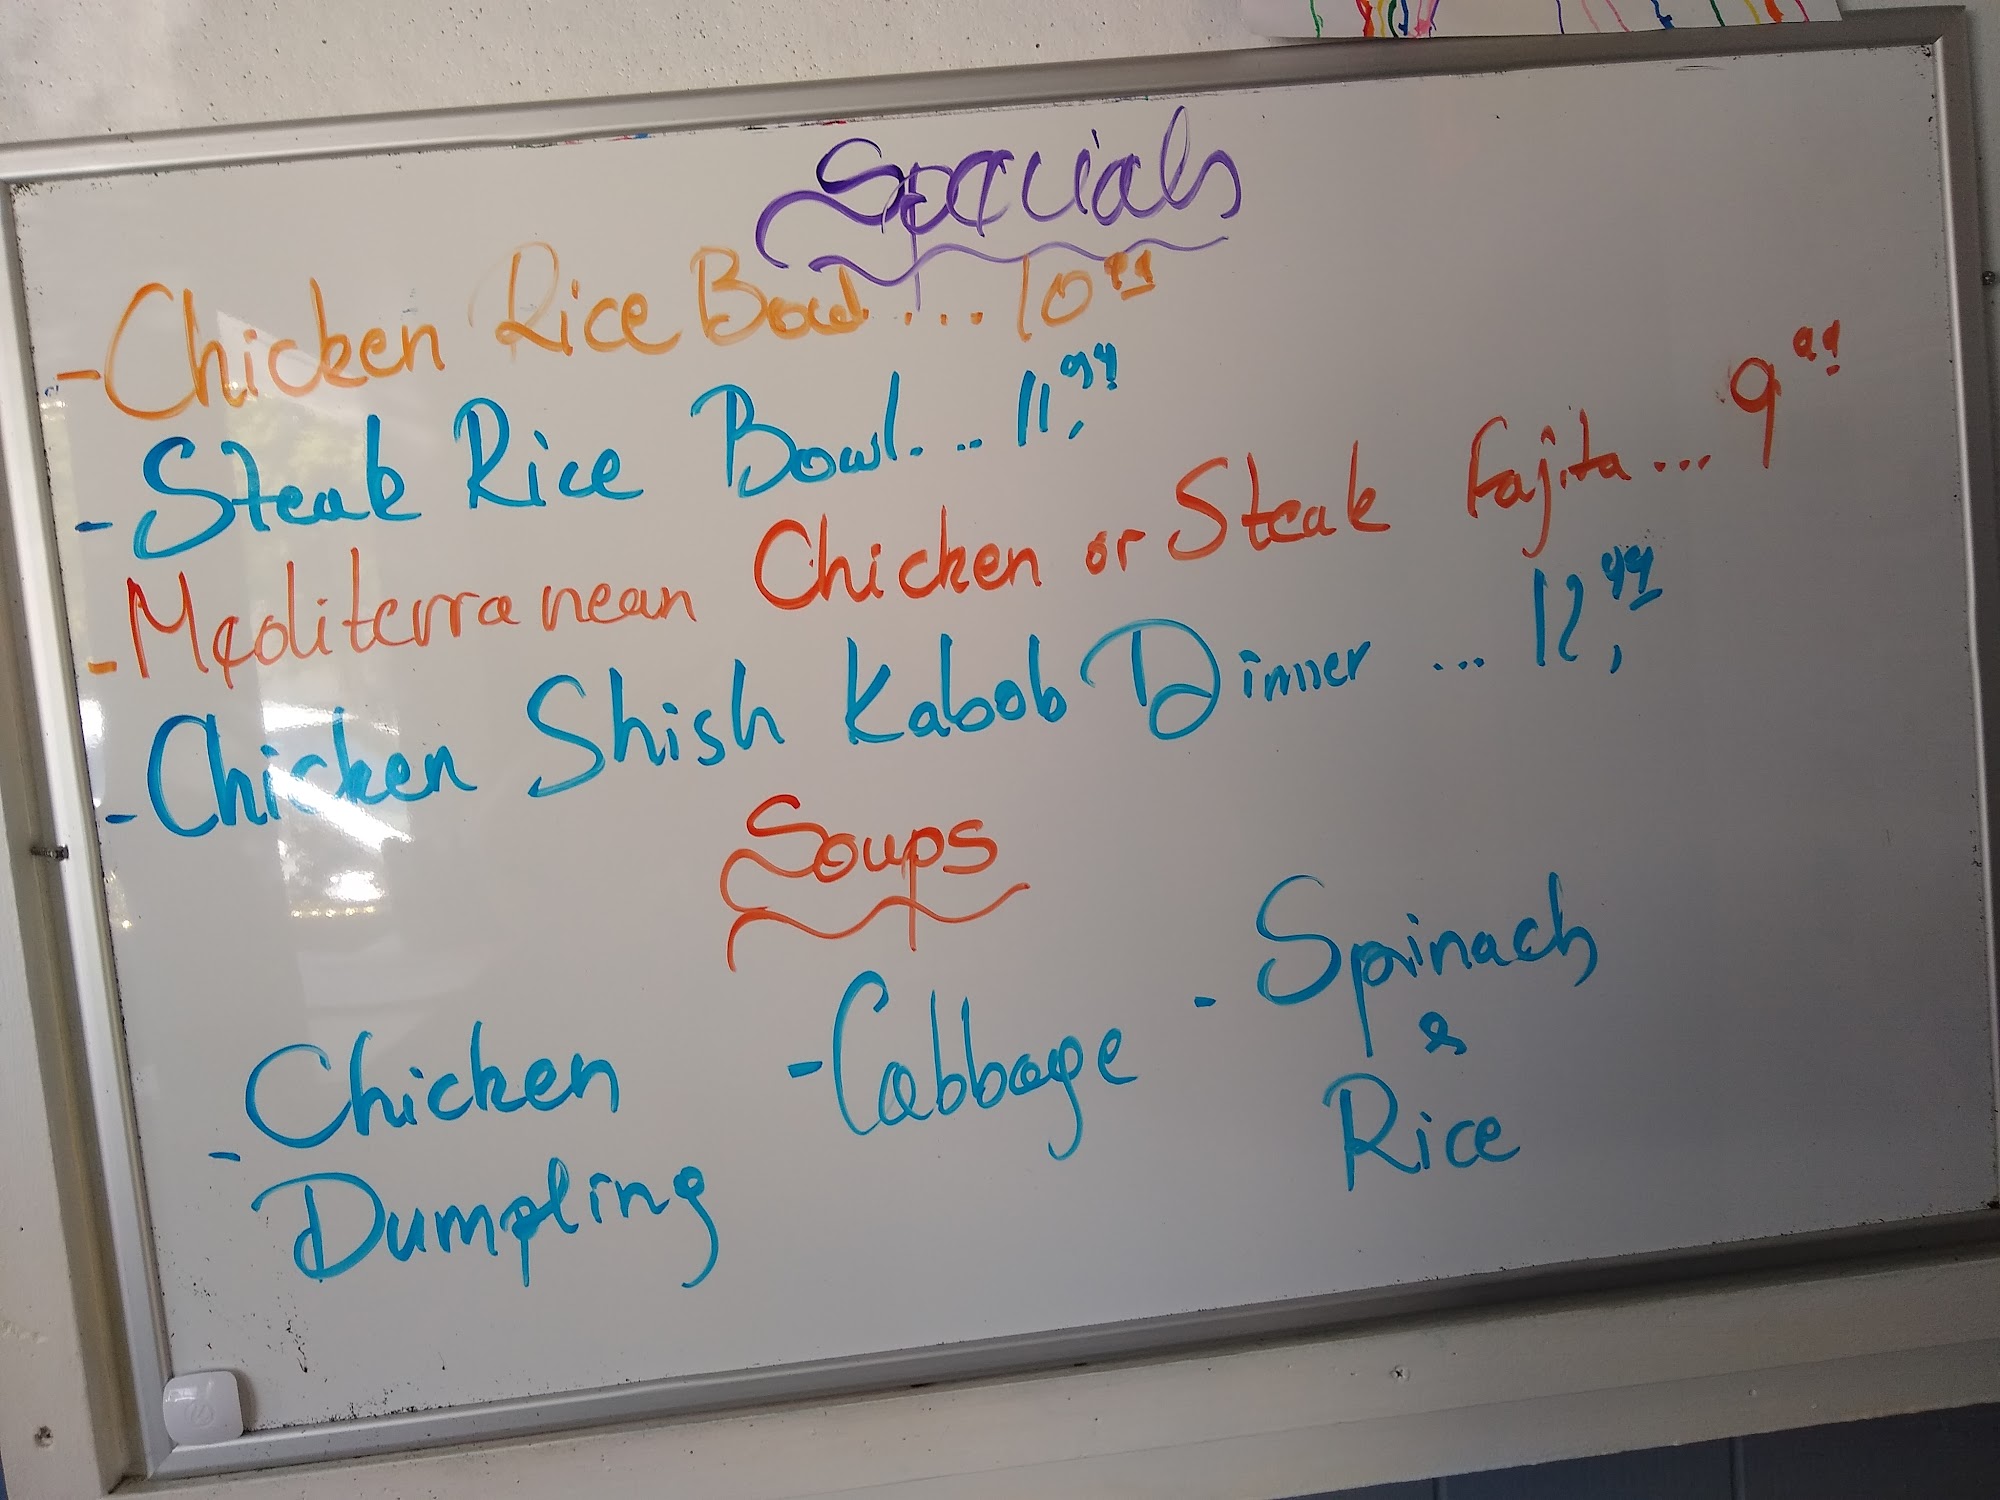 Specials
- Chicken Rice Bowl.... 10 99
- Steak Rice Bowl... 11,99
- Mediterranean Chicken or Steak Fajita... 9 99
- Chicken Shish Kabob Dinner ... 12,99
Soups
- Chicken Dumpling
- Cabbage
- Spinach & Rice